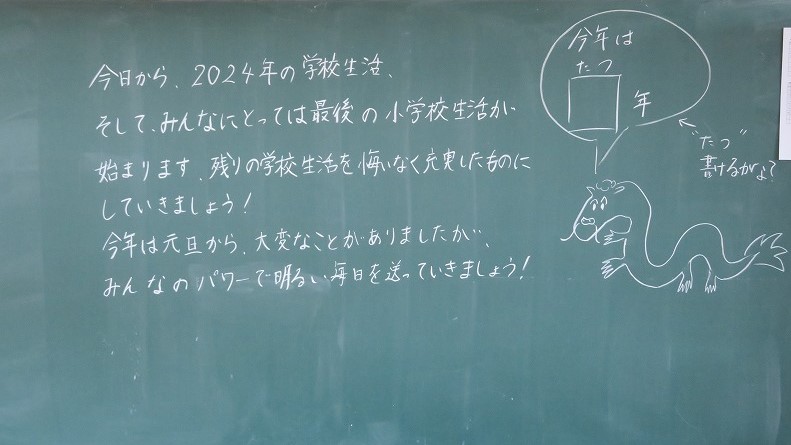 今日から、2024年の学校生活、
そして、みんなにとっては最後の小学校生活が
始まります。残りの学校生活を悔いなく充実したものに
していきましょう!
今年は元旦から、大変なことがありましたが、
みんなのパワーで明るい毎日を送っていきましょう!
今年は
たつ
年
"たつ"
書けるかよ?